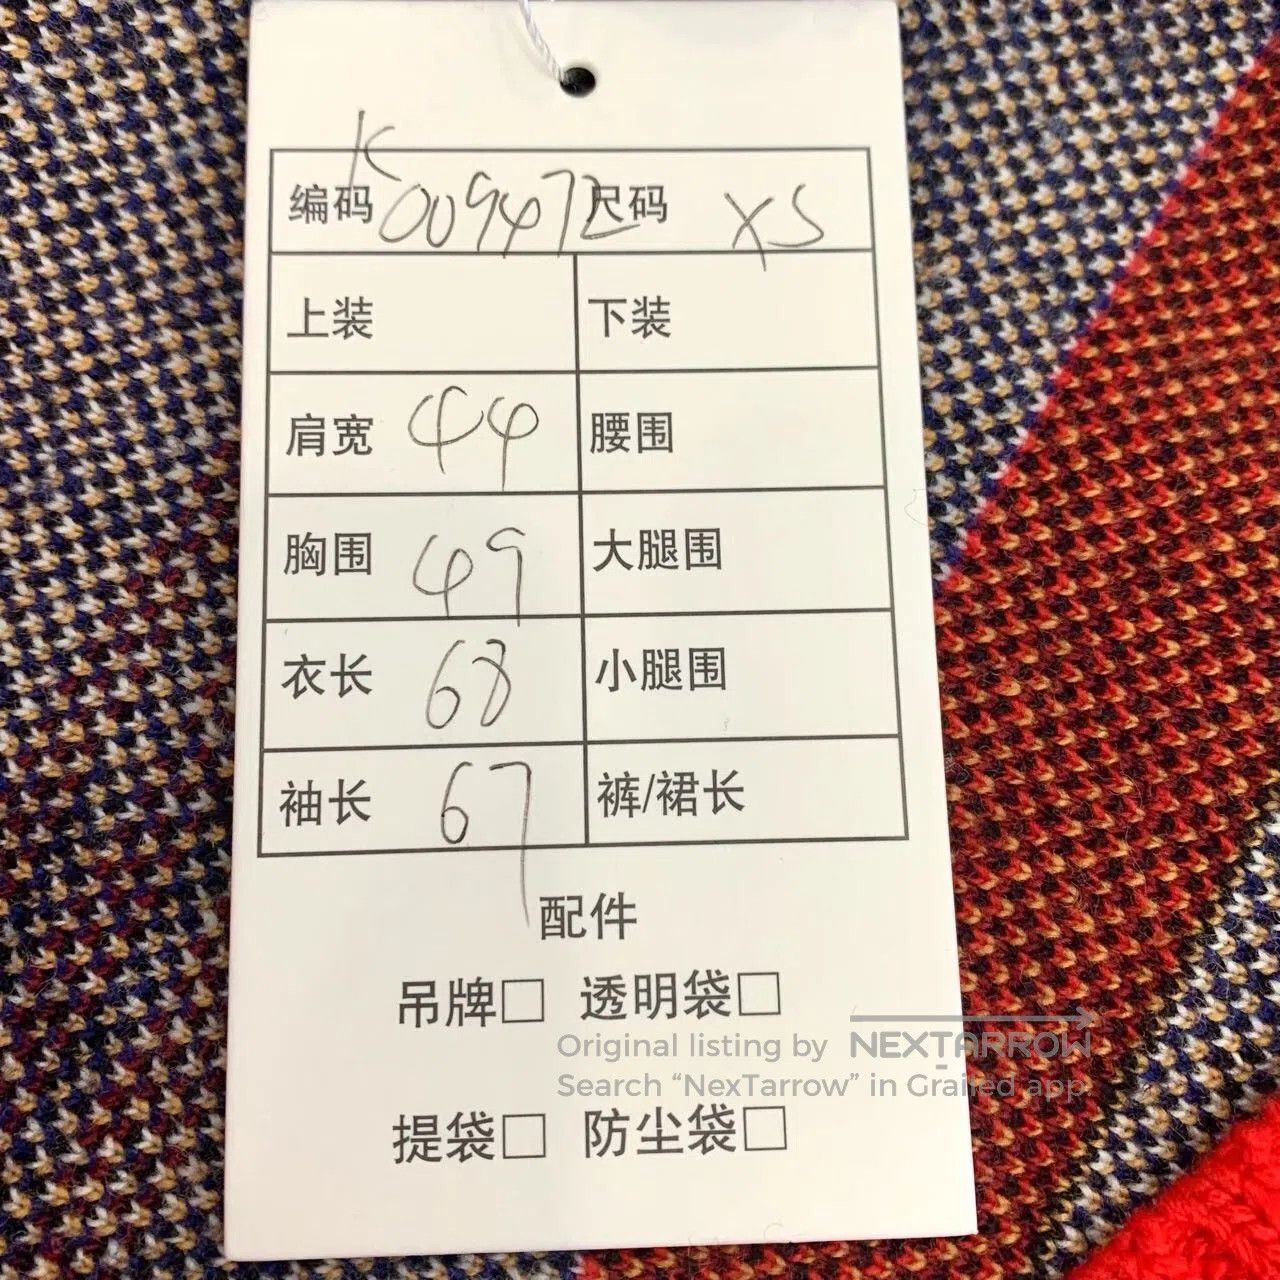 编码 K009472 尺码 XS
上装 下装
肩宽 44 腰围
胸围 49 大腿围
衣长 68 小腿围
袖长 67 裤/裙长
配件
吊牌□ 透明袋□
Original listing by NEXTARROW
Search “NexTarrow” in Grailed app.
提袋□ 防尘袋□